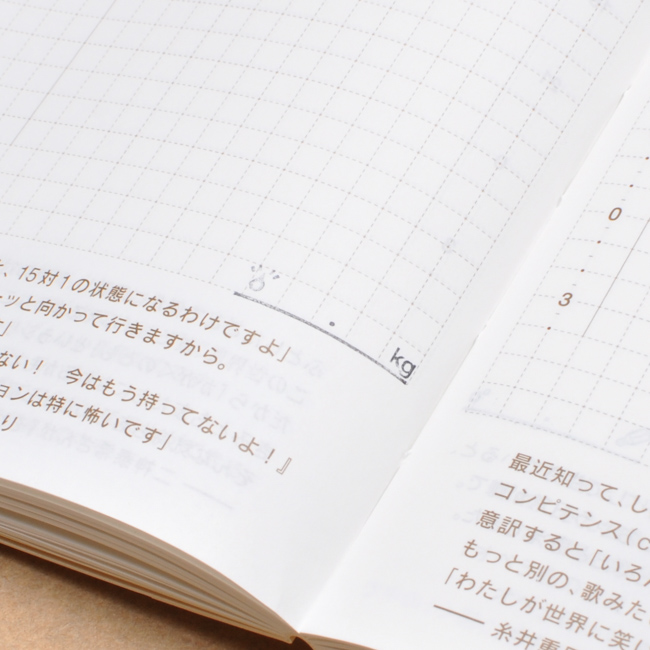 kg
、15対1の状態になるわけですよ」
ッと向かって行きますから。
」
ない!　今はもう持ってないよ!』
ョンは特に怖いです」
り
0
3
最近知って、し
コンピテンス(c
意訳すると「いろん
もっと別の、歌みた
「わたしが世界に笑
——糸井重